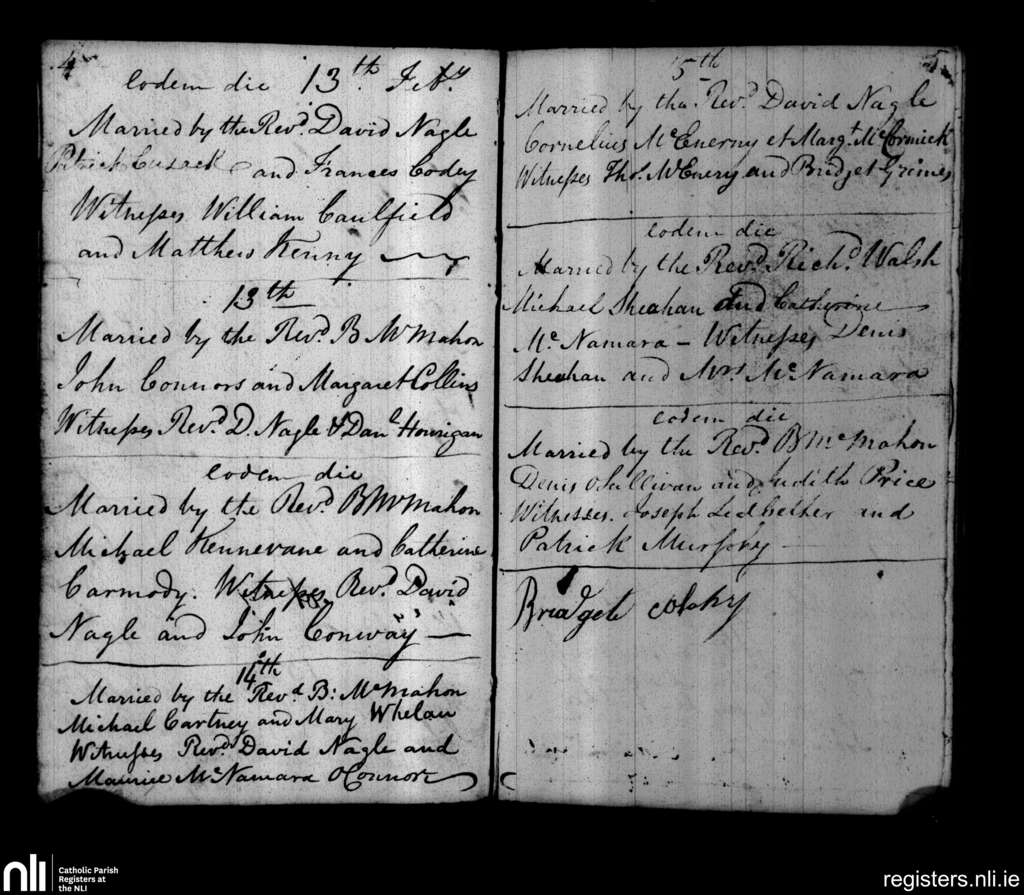 4
eodem die 13th Feby
Married by the Revd. David Nagle
Patrick Cusack and Frances Codey
Witnesses William Caulfield
and Matthew Kenny
13th
Married by the Revd. B McMahon
John Connors and Margaret Collins
Witnesses Revd. D. Nagle & Danl Hourigan
eodem die
Married by the Revd B McMahon
Michael Kennevane and Catherine
Carmody. Witnesses Revd. David
Nagle and John Conway
14th
Married by the Revd B: McMahon
Michael Cartney and Mary Whelan
Witnesses Revd David Nagle and
Maurice McNamara OConnor
5
15th
Married by the Revd David Nagle
Cornelius McEnerny et Margt. McCormick
Witnesses Thos. McEnery and Bridget Grimes
eodem die
Married by the Revd. Richd. Walsh
Michael Sheahan and Catherine
Mc Namara - Witnesses Denis
Sheahan and Mrs. McNamara
eodem die
Married by the Revd B McMahon
Denis OSullivan and Judith Price
Witnesses. Joseph Ledbetter and
Patrick Murphy
Bridget
nli Catholic Parish
Registers at
the NLI
registers.nli.ie